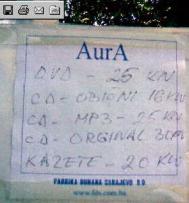 AurA
DVD - 25 KN
CD - OBIČNI 18 KN
CD - MP3 - 25 KN
CD - ORGINAL 30 KN
KAZETE - 20 KN
FABRIKA DUHANA SARAJEVO D.D.
www.fds.com.ba